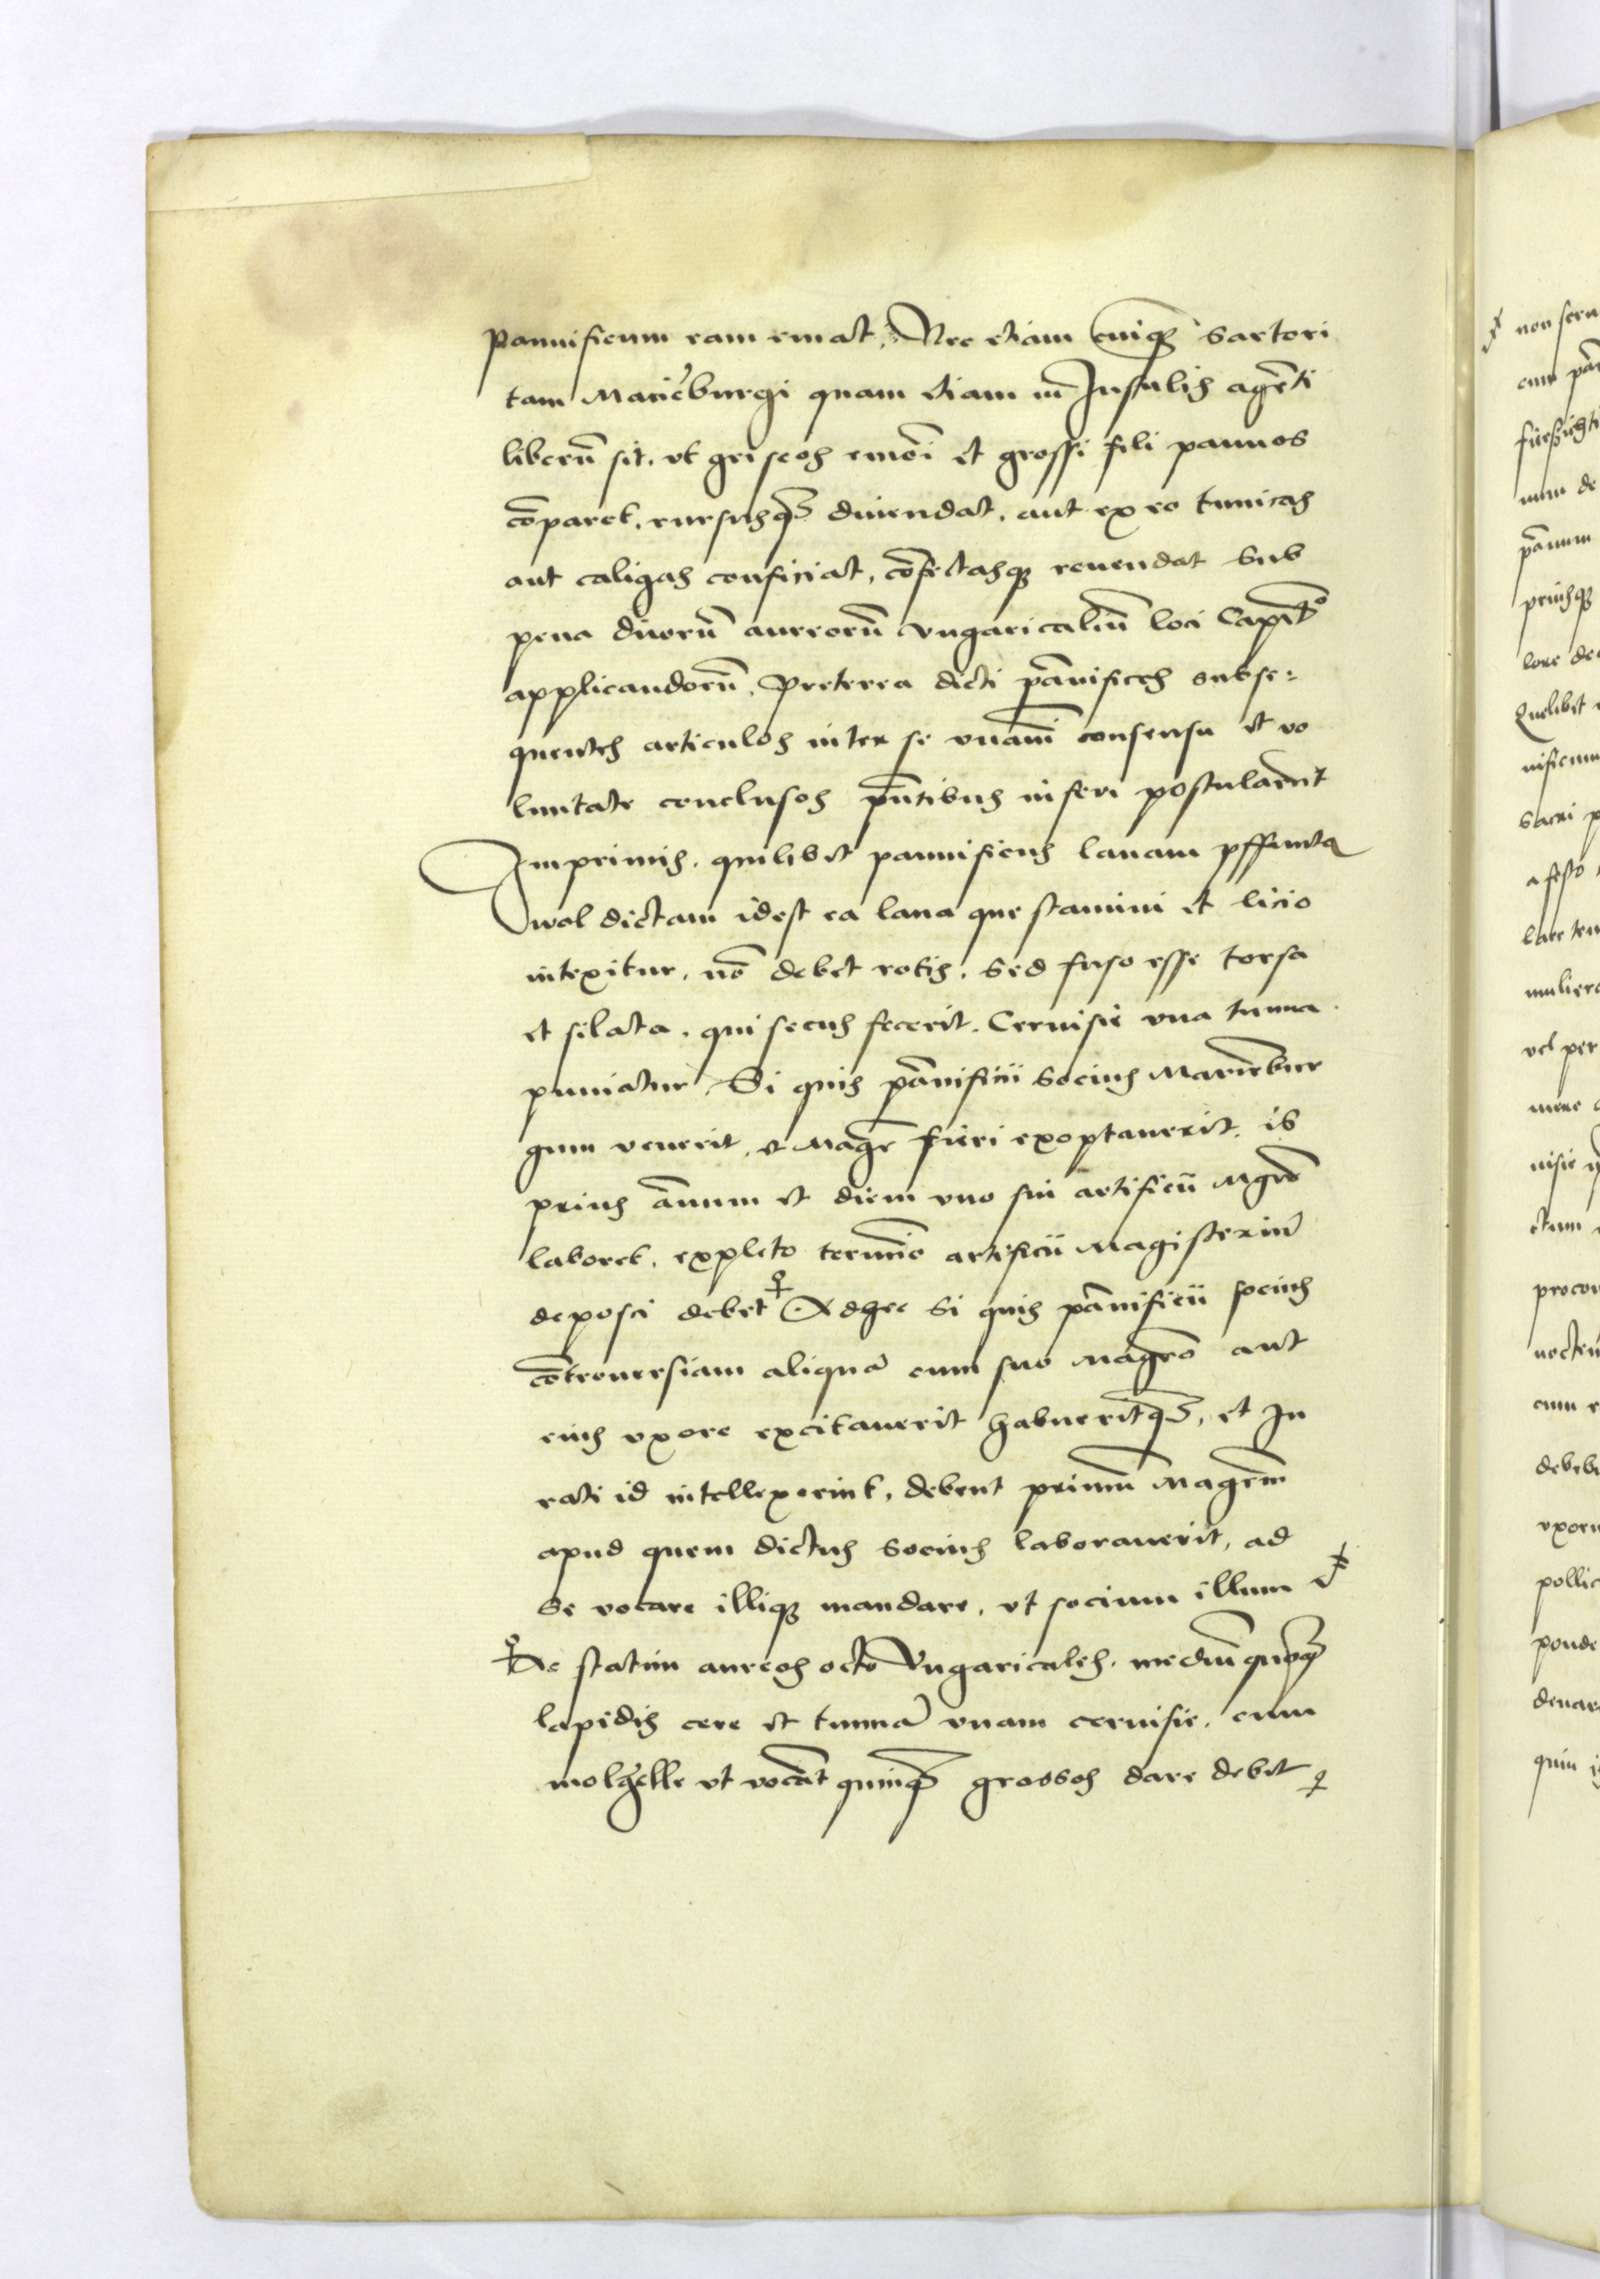 pannificum eam emat, Nec etiam cuiqꝫ Sartori
tam Marieburgi quam etiam in Insulis agēti
liberū sit. vt griseos emōi et grossi fili pannos
cōparet, rursusqꝫ diuendat, aut ex eo tunicas
aut caligas conficiat, cōfectasqꝫ reuendat Sub
pena duorū aureorū vngaricaliū loci Capītᵒ
applicandorū, Preterea dicti pānifices subse=
quentes articulos inter se vnāni consensu et vo
luntate conclusos pn̄tibus inseri postularūt
Imprimis. quilibet pannificus lanam
wol dictam idest ea lana que stamini et licio
intexitur, nō debet rotis, sed fuso esse torsa
et filata, qui secus fecerit. Ceruisie vna tunna
puniatur. Si quis pānificii Socius Marienbur
gum venerit, et Magr̄ fieri exoptauerit, is
prius ānum et diem vno sui artificii Mgrō
laboret, expleto termīo artificii Magisteriū
deposci debet Adhec Si quis pānificii socius
cōtrouersiam aliquā cum suo Magrō aut
eius vxore excitauerit habueritqꝫ, et Iu
rati id intellexerint, debent primū Magrēm
apud quem dictus Socius laborauerit, ad
Se vocare illiqꝫ mandare, vt socium illum
Ac statim aureos octo Vngaricales, mediū quoqꝫ
lapidis cere et tunnā vnam ceruisie, cum
molhelle vt vocāt quinqꝫ grossos dare debet
non seru
cum pān
num de
pānum
priusqꝫ
lore de
Quelibet
nificum
Sacri p
a festo
lare ten
muliere
vel per
nisie
etiam
procon
noctem
cum
debebi
vxoru
pollic
ponde
denar
quin